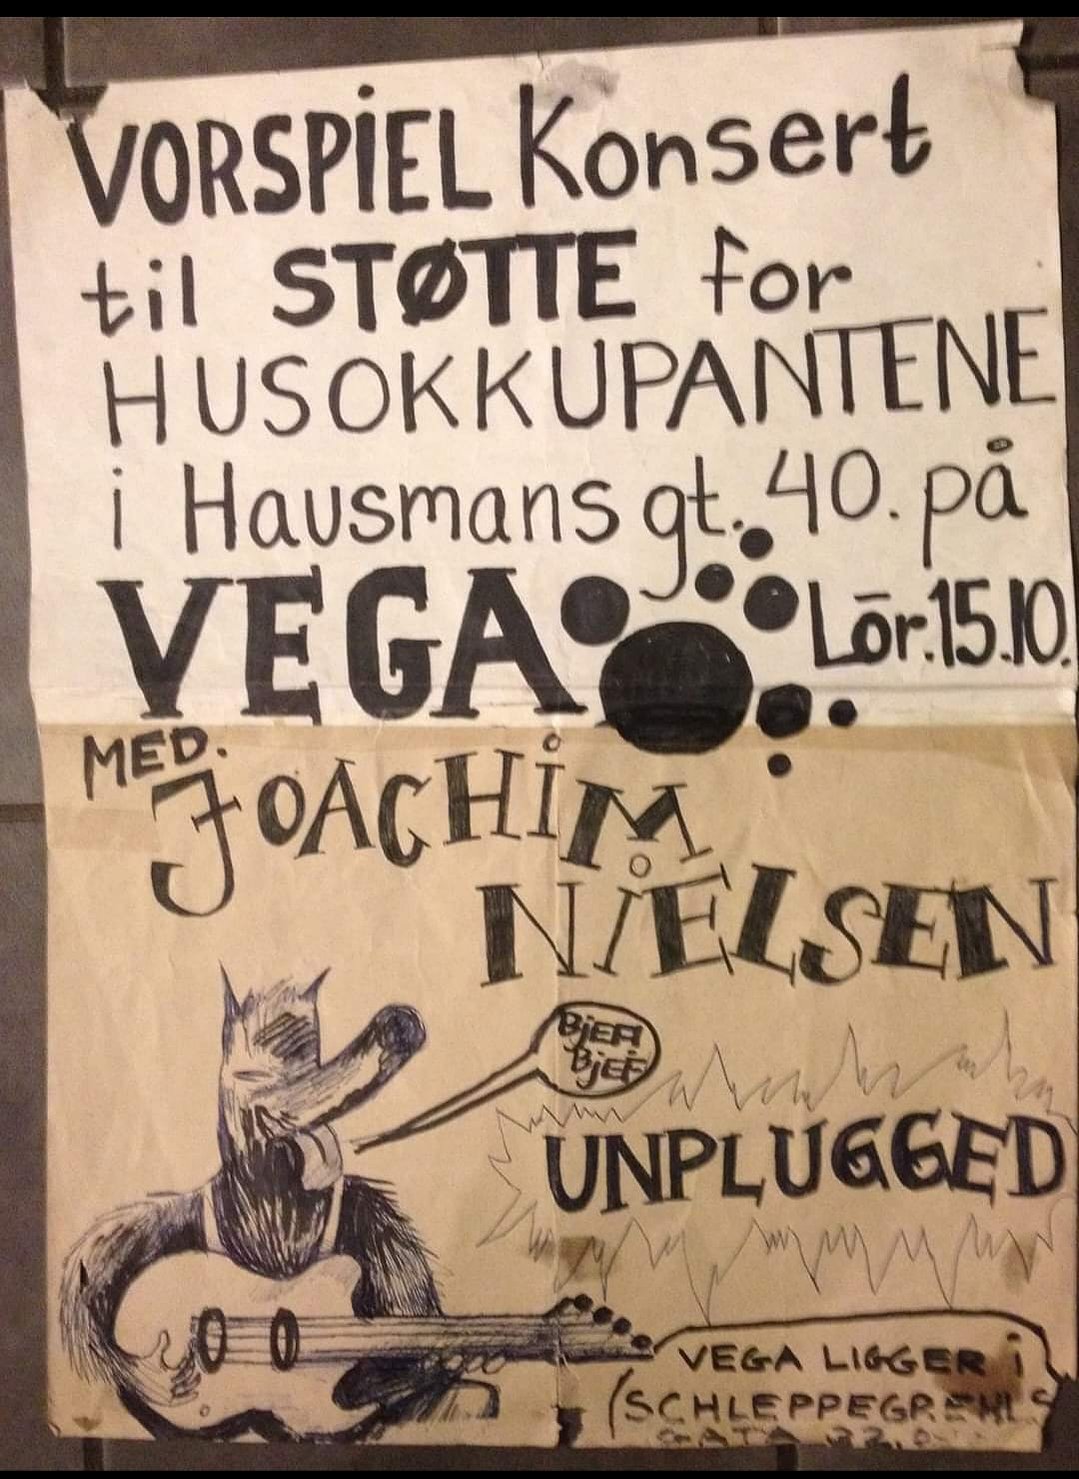 VORSPIEL Konsert
til STØTTE for
HUSOKKUPANTENE
i Hausmans gt. 40. på
VEGA Lōr.15.10.
MED.
JOACHIM
NIELSEN
BJEF!
BJEF
UNPLUGGED
VEGA LIGGER i
SCHLEPPEGRELLS
GATA 32.